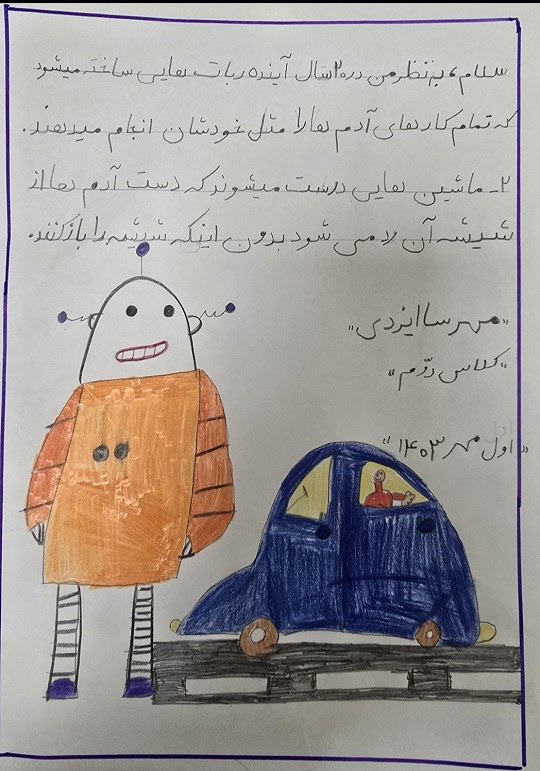 سلام، به نظر من در ۲۰ سال آینده ربات هایی ساخته میشود
که تمام کارهای آدم ها را مثل خودشان انجام میدهند.
۲- ماشین هایی درست میشوند که دست آدم ها از
شیشه آن لا می شود بدون اینکه شیشه را باز کنند.
"مهرسا ایزدی"
"کلاس دوّم"
"اول مهر ۱۴۰۳"